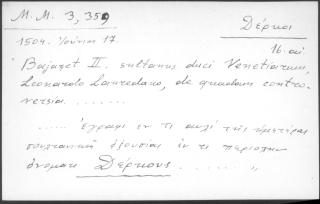 M. M. 3, 359
Δέρκοι
1504. Ἰούνιον 17
16. αἰ
Bajazet II. sultanus duci Venetiarum,
Leonardo Lauredano, de quadam contro-
versia .......
..... ἔγραψε ἐν τι αὐλῇ τῆς ἡμετέρας
σουλτανικῆ ἐξουσίας ἐν τι
ὀνόματι Δέρκους ......... "